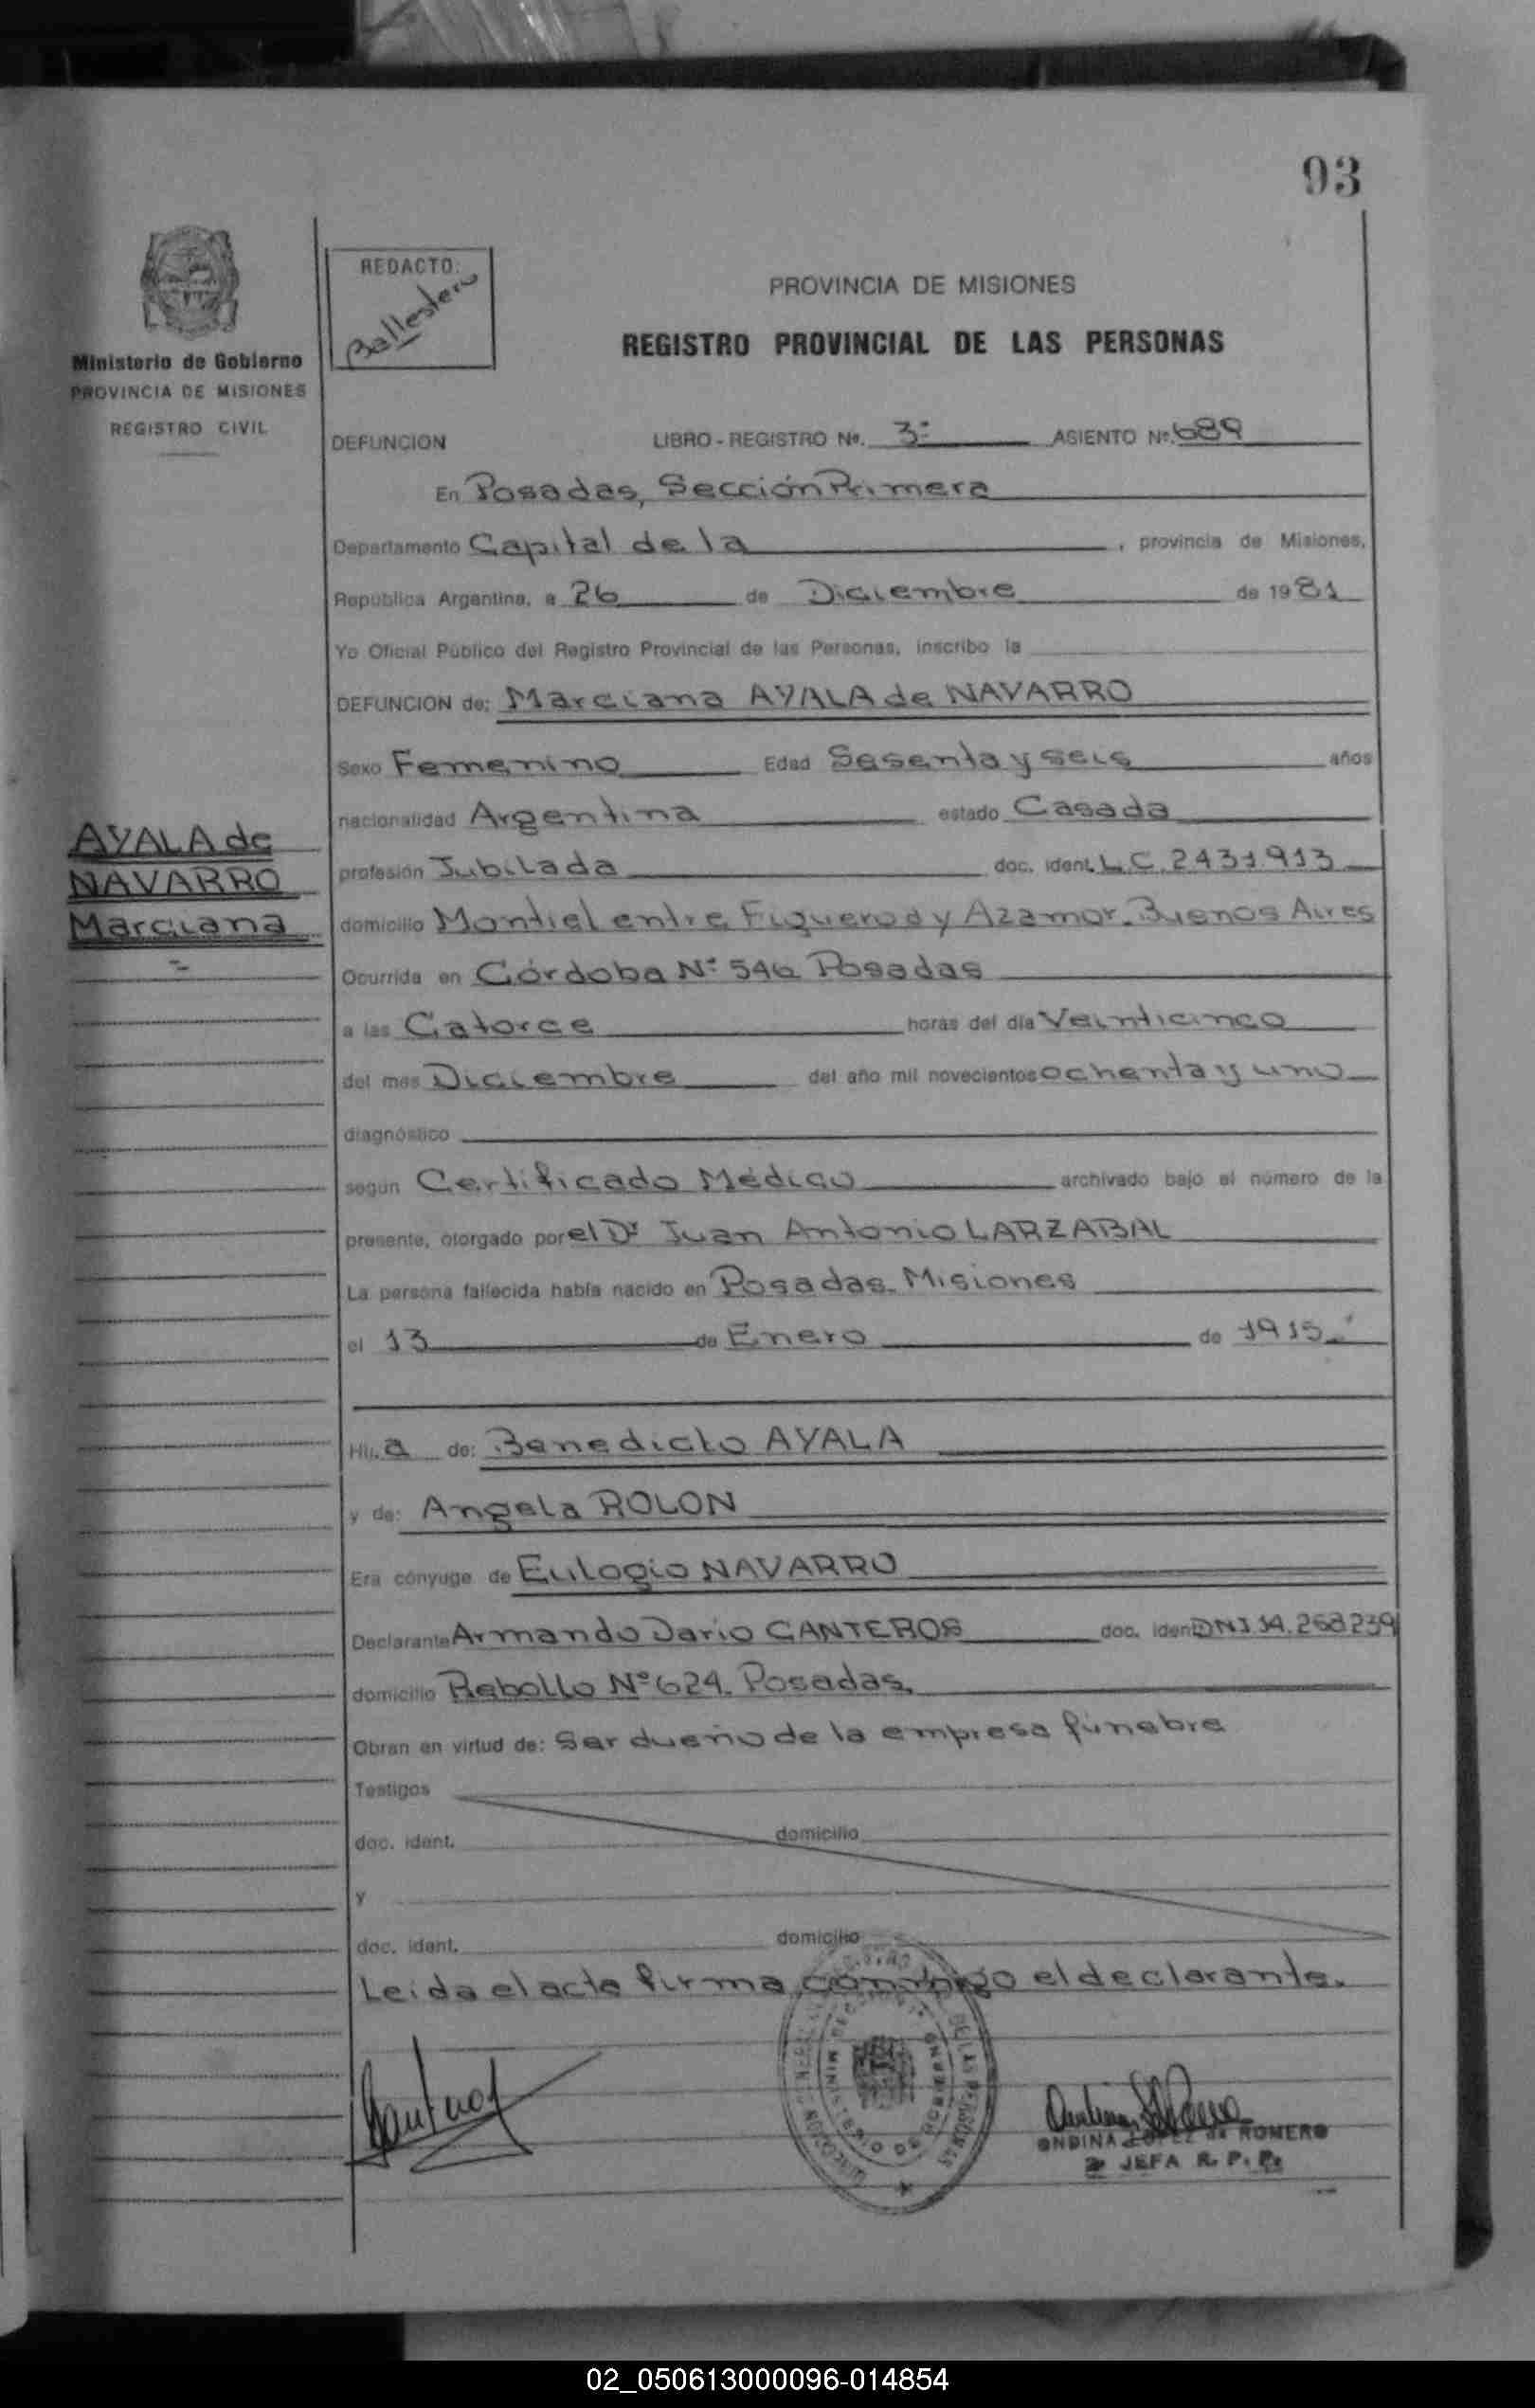 93
Ministerio de Gobierno
PROVINCIA DE MISIONES
REGISTRO CIVIL
REDACTO:
Ballestero
PROVINCIA DE MISIONES
REGISTRO PROVINCIAL DE LAS PERSONAS
DEFUNCION LIBRO - REGISTRO Nº. 3º ASIENTO Nº. 689
En Posadas, Sección Primera
Departamento Capital de la , provincia de Misiones,
República Argentina, a 26 de Diciembre de 1981
Yo Oficial Público del Registro Provincial de las Personas, inscribo la
DEFUNCION de: Marciana AYALA de NAVARRO
Sexo Femenino Edad Sesenta y seis años
nacionalidad Argentina estado Casada
AYALA de
NAVARRO
Marciana
profesión Jubilada doc. ident. L.C. 2431913
domicilio Montiel entre Figueroa y Azamor. Buenos Aires
Ocurrida en Córdoba Nº 546 Posadas
a las Catorce horas del día Veinticinco
del mes Diciembre del año mil novecientos ochenta y uno
diagnóstico
según Certificado Médico archivado bajo el número de la
presente, otorgado por el Dr Juan Antonio LARZABAL
La persona fallecida había nacido en Posadas. Misiones
el 13 de Enero de 1915
Hija de: Benedicto AYALA
y de: Angela ROLON
Era cónyuge de Eulogio NAVARRO
Declarante Armando Dario CANTEROS doc. ident. DNI 14.268239
domicilio Rebollo Nº 624. Posadas.
Obran en virtud de: Ser dueño de la empresa fúnebre
Testigos
doc. ident. domicilio
y
doc. ident. domicilio
Leida el acta firma conmigo el declarante.
MINISTERIO DE GOBIERNO
DE LAS PERSONAS
ONDINA LOPEZ de ROMERO
JEFA R. P. P.
02_050613000096-014854